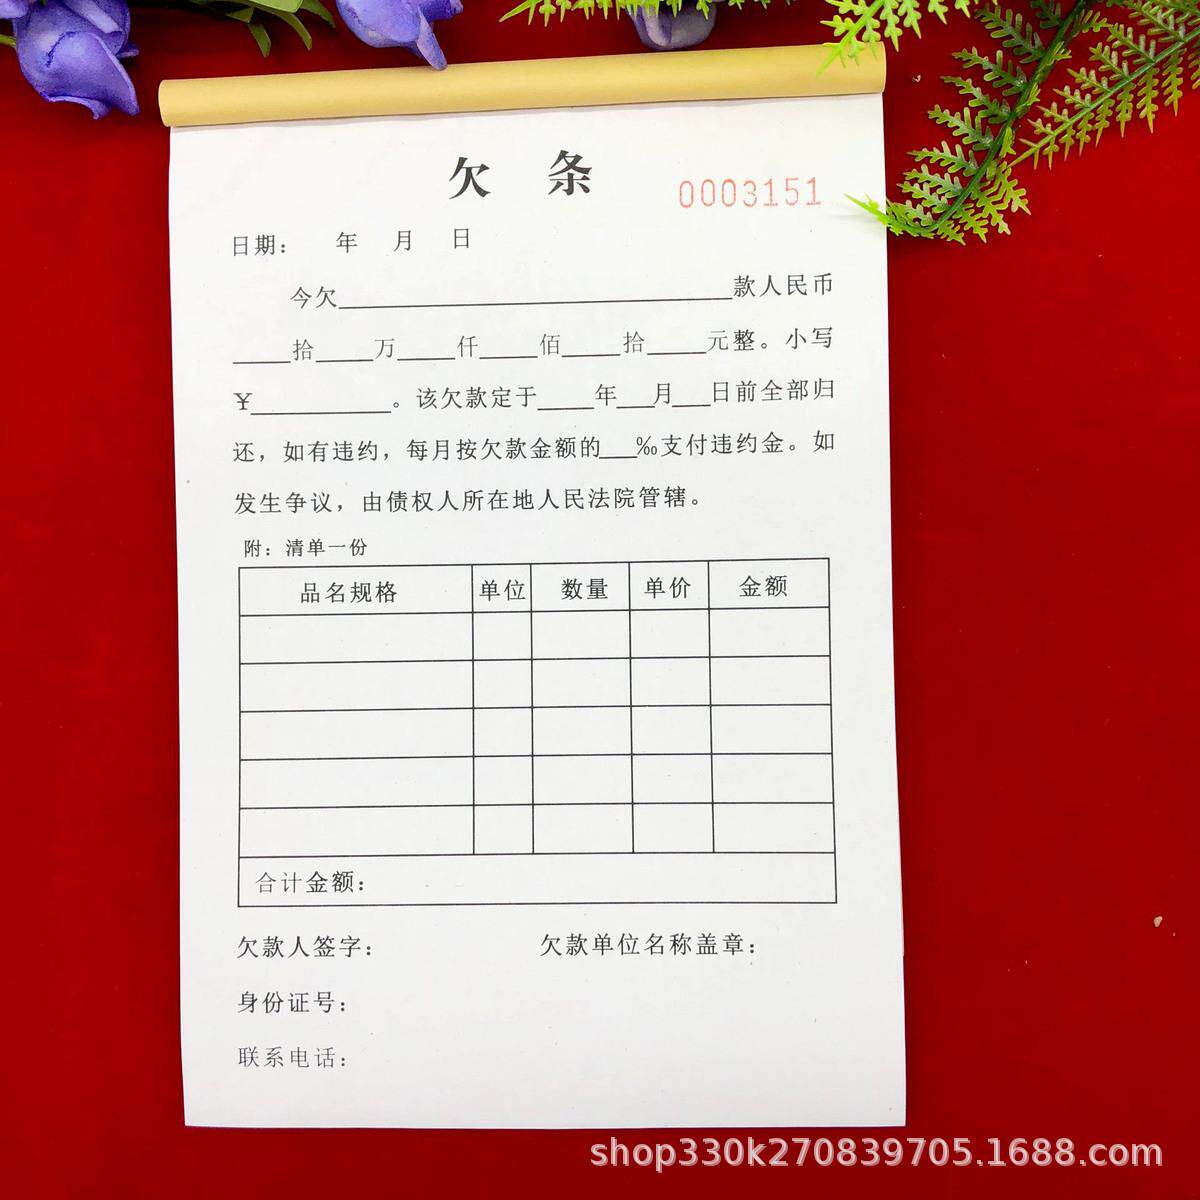 欠 条
0003151
日期： 年 月 日
今欠______款人民币
____拾____万____仟____佰____拾____元整。小写
¥__________。该欠款定于____年___月___日前全部归
还，如有违约，每月按欠款金额的___‰支付违约金。如
发生争议，由债权人所在地人民法院管辖。
附：清单一份
品名规格 单位 数量 单价 金额
合计金额：
欠款人签字： 欠款单位名称盖章：
身份证号：
联系电话：
shop330k270839705.1688.com